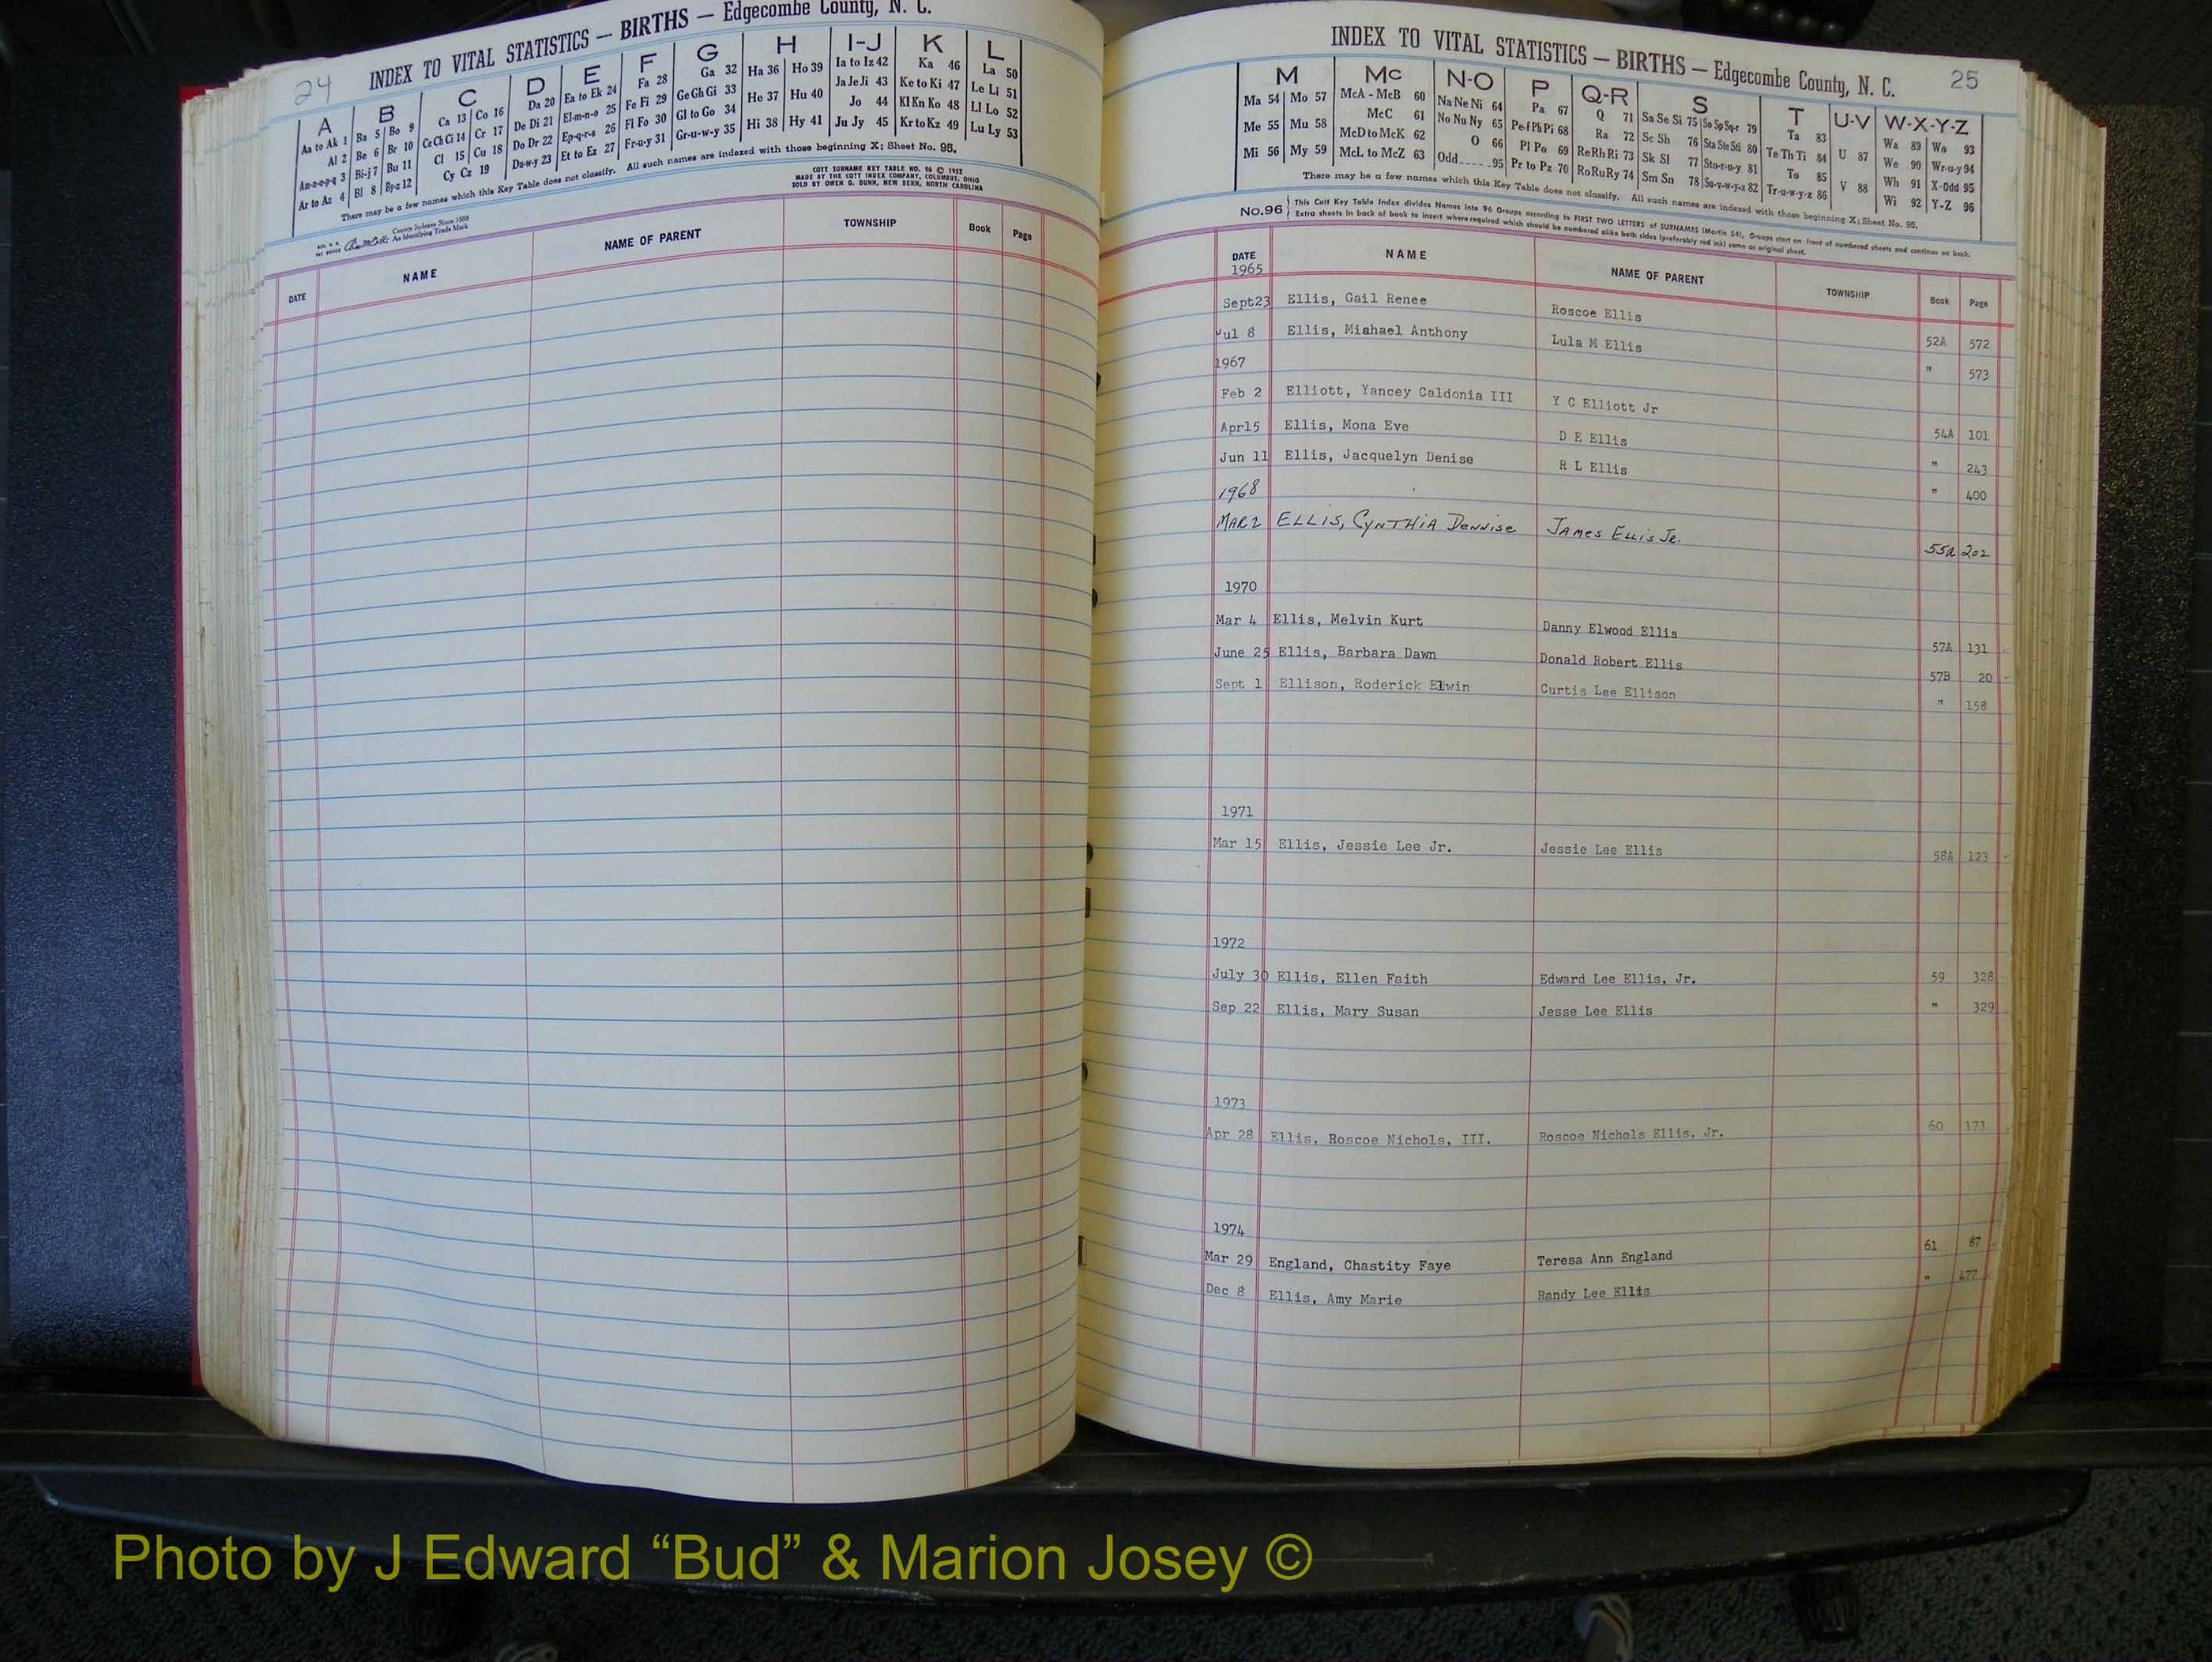 24
INDEX TO VITAL STATISTICS — BIRTHS — Edgecombe County, N. C.
A B C D E F G H I-J K L
Aa to Ak 1 Ba 5 Bo 9 Ca 13 Co 16 Da 20 Ea to Ek 24 Fa 28 Ga 32 Ha 36 Ho 39 Ia to Iz 42 Ka 46 La 50
Al 2 Be 6 Br 10 Ce Ch Ci 14 Cr 17 De Di 21 El-m-n-o 25 Fe Fi 29 Ge Gh Gi 33 He 37 Hu 40 Ja Je Ji 43 Ke to Ki 47 Le Li 51
Am-n-o-p-q 3 Bi-j 7 Bu 11 Cl 15 Cu 18 Do Dr 22 Ep-q-r-s 26 Fl Fo 30 Gl to Go 34 Hi 38 Hy 41 Jo 44 Kl Kn Ko 48 Ll Lo 52
Ar to Az 4 Bl 8 By-z 12 Cy Cz 19 Du-w-y 23 Et to Ez 27 Fr-u-y 31 Gr-u-w-y 35 Ju Jy 45 Kr to Kz 49 Lu Ly 53
There may be a few names which this Key Table does not classify. All such names are indexed with those beginning X; Sheet No. 95.
COTT SURNAME KEY TABLE NO. 96 © 1952
MADE BY THE COTT INDEX COMPANY, COLUMBUS, OHIO
SOLD BY OWEN G. DUNN, NEW BERN, NORTH CAROLINA
County Indexes Since 1888
An Identifying Trade Mark
DATE NAME NAME OF PARENT TOWNSHIP Book Page
INDEX TO VITAL STATISTICS — BIRTHS — Edgecombe County, N. C. 25
M Mc N-O P Q-R S T U-V W-X-Y-Z
Ma 54 Mo 57 McA - McB 60 Na Ne Ni 64 Pa 67 Q 71 Sa Se Si 75 So Sp Sq-r 79 Ta 83 U 87 Wa 89 Wo 93
Me 55 Mu 58 McC 61 No Nu Ny 65 Pe-f Ph Pi 68 Ra 72 Sc Sh 76 Sta Ste Sti 80 Te Th Ti 84 V 88 We 90 Wr-u-y 94
Mi 56 My 59 McD to McK 62 O 66 Pl Po 69 Re Rh Ri 73 Sk Sl 77 Sto-r-u-y 81 To 85 Wh 91 X-Odd 95
McL to McZ 63 Odd 95 Pr to Pz 70 Ro Ru Ry 74 Sm Sn 78 Su-v-w-y-z 82 Tr-u-w-y-z 86 Wi 92 Y-Z 96
There may be a few names which this Key Table does not classify. All such names are indexed with those beginning X; Sheet No. 95.
No.96 This Cott Key Table Index divides Names into 96 Groups according to FIRST TWO LETTERS of SURNAMES (Martin 54). Groups start on front of numbered sheets and continue on back.
Extra sheets in back of book to insert where required which should be numbered alike both sides (preferably red ink) same as original sheet.
DATE NAME NAME OF PARENT TOWNSHIP Book Page
1965
Sept23 Ellis, Gail Renee Roscoe Ellis 52A 572
Jul 8 Ellis, Miahael Anthony Lula M Ellis " 573
1967
Feb 2 Elliott, Yancey Caldonia III Y C Elliott Jr 54A 101
Apr15 Ellis, Mona Eve D E Ellis " 243
Jun 11 Ellis, Jacquelyn Denise R L Ellis " 400
1968
MAR 2 ELLIS, CYNTHIA DENNISE JAMES ELLIS JR. 55A 202
1970
Mar 4 Ellis, Melvin Kurt Danny Elwood Ellis 57A 131
June 25 Ellis, Barbara Dawn Donald Robert Ellis 57B 20
Sept 1 Ellison, Roderick Elwin Curtis Lee Ellison " 158
1971
Mar 15 Ellis, Jessie Lee Jr. Jessie Lee Ellis 58A 123
1972
July 30 Ellis, Ellen Faith Edward Lee Ellis, Jr. 59 328
Sep 22 Ellis, Mary Susan Jesse Lee Ellis " 329
1973
Apr 28 Ellis, Roscoe Nichols, III. Roscoe Nichols Ellis, Jr. 60 173
1974
Mar 29 England, Chastity Faye Teresa Ann England 61 87
Dec 8 Ellis, Amy Marie Randy Lee Ellis " 477
Photo by J Edward “Bud” & Marion Josey ©